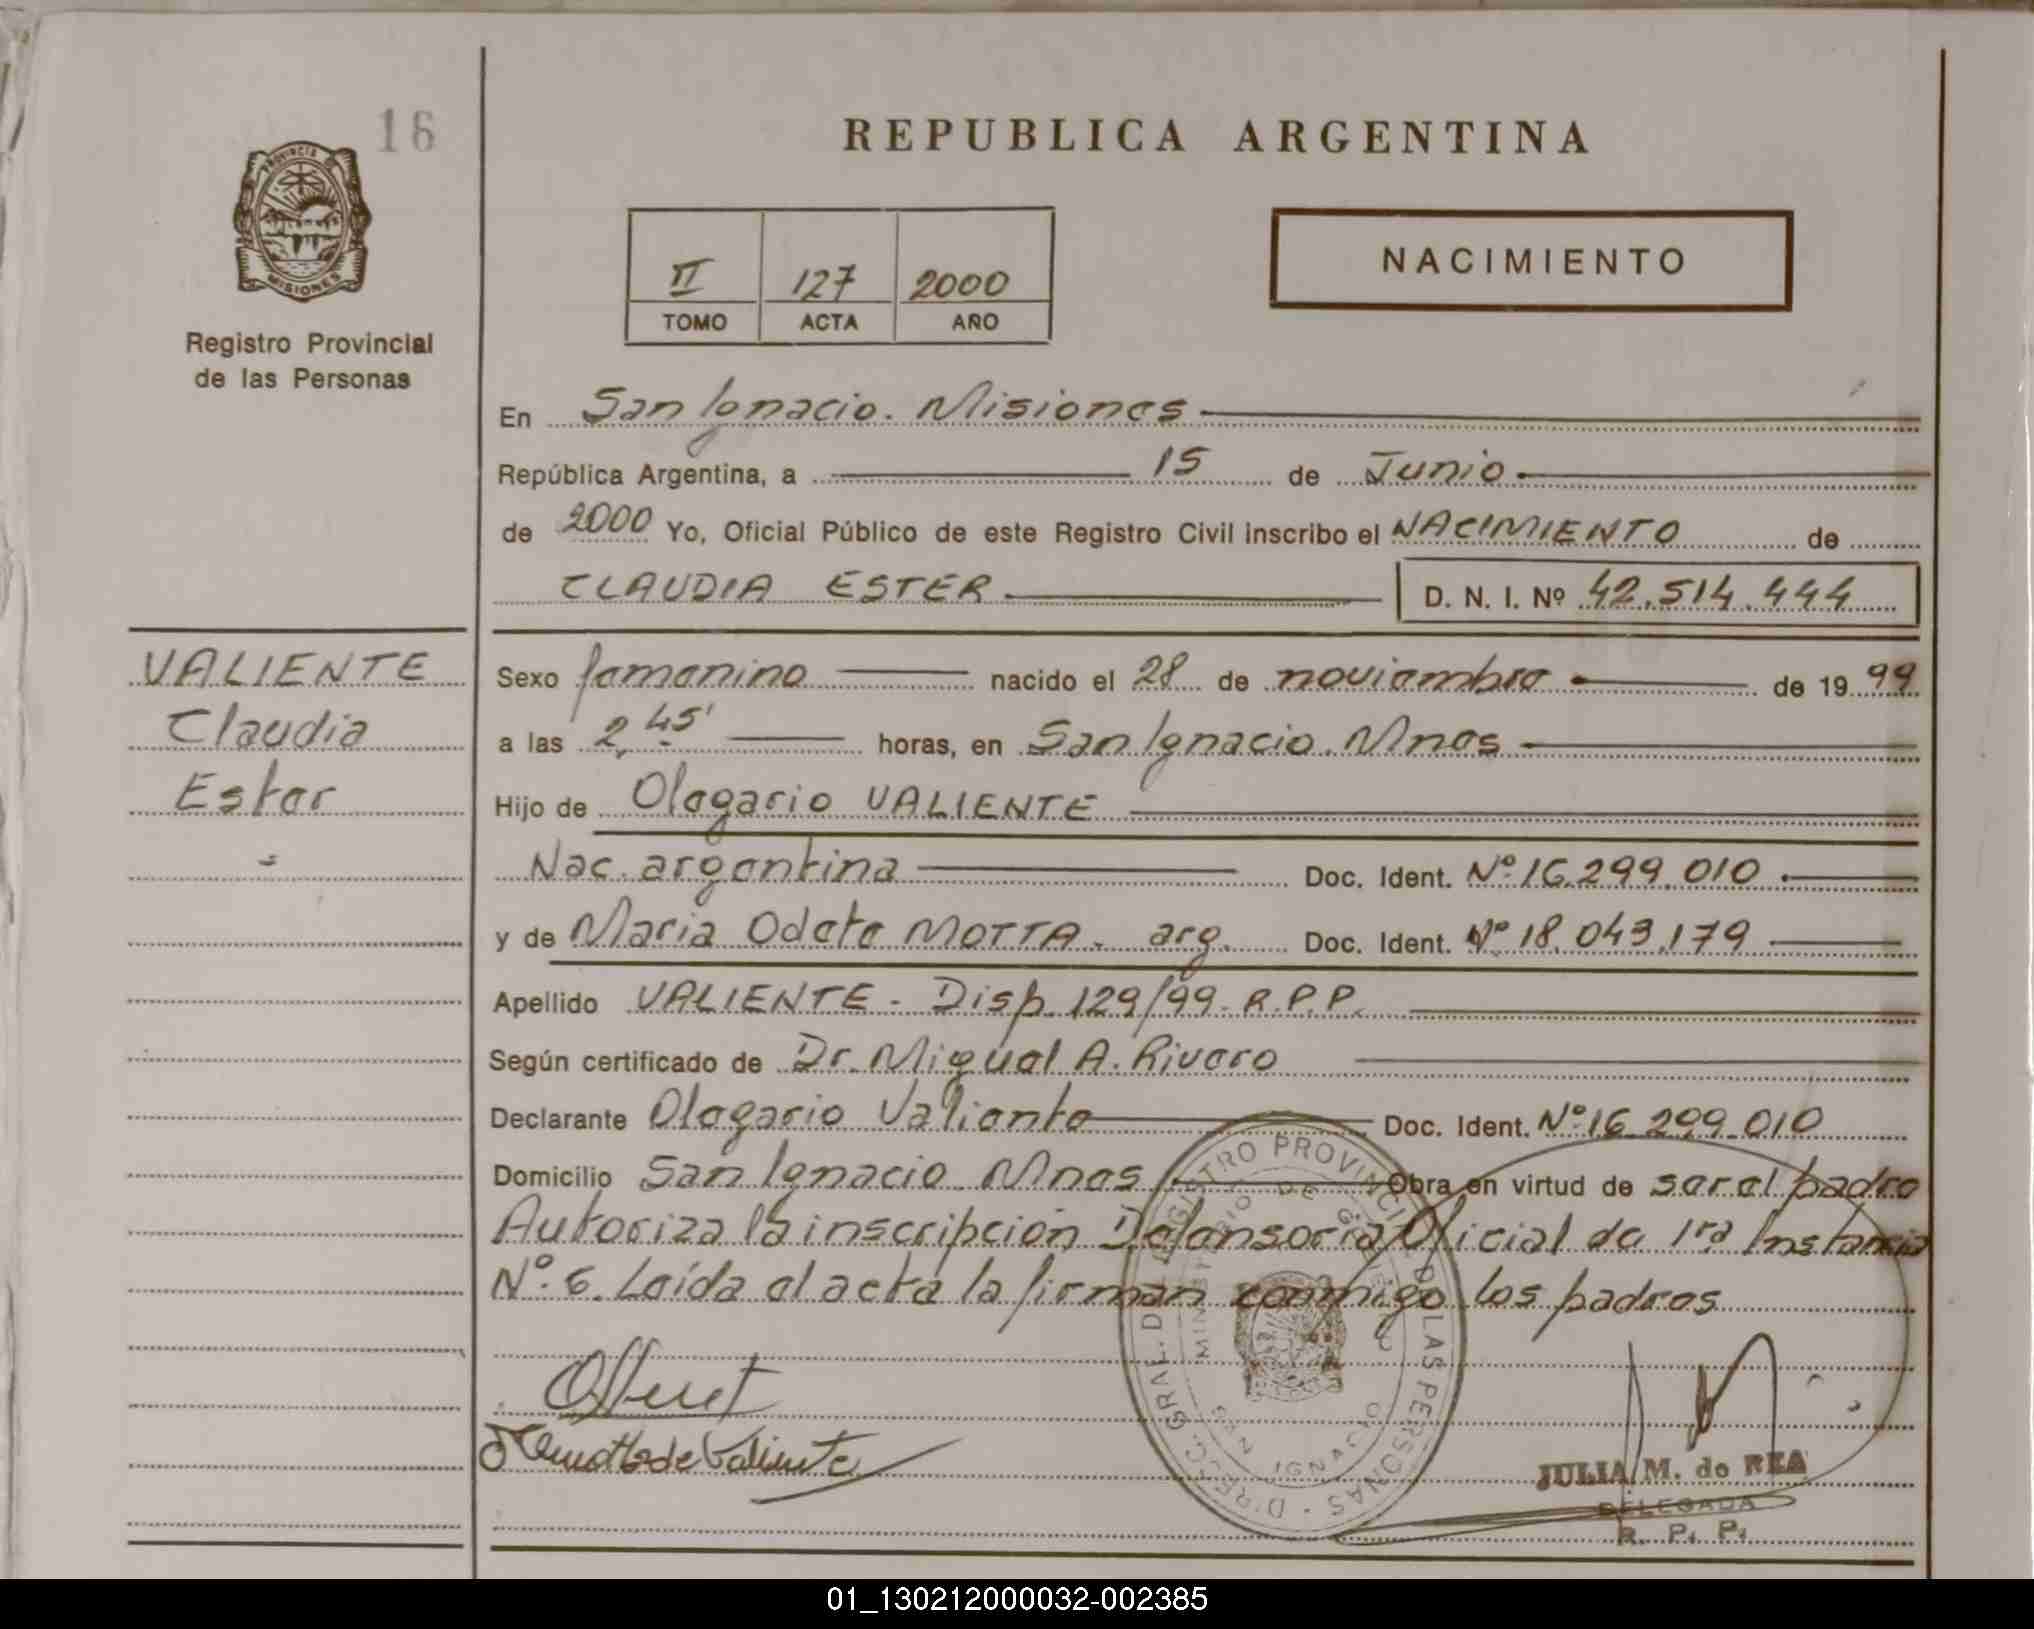 16
REPUBLICA ARGENTINA
PROVINCIA DE
MISIONES
Registro Provincial
de las Personas
II 127 2000
TOMO ACTA AÑO
NACIMIENTO
En San Ignacio. Misiones
República Argentina, a 15 de Junio
de 2000 Yo, Oficial Público de este Registro Civil inscribo el NACIMIENTO de
CLAUDIA ESTER D. N. I. Nº 42.514.444
VALIENTE
Claudia
Ester
Sexo femenino nacido el 28 de noviembre de 19 99
a las 2,45' horas, en San Ignacio. Mnes
Hijo de Olegario VALIENTE
Nac. argentina Doc. Ident. Nº 16.299.010
y de Maria Odete MOTTA. arg. Doc. Ident. Nº 18.043.179
Apellido VALIENTE - Disp. 129/99. R.P.P.
Según certificado de Dr. Miguel A. Rivero
Declarante Olegario Valiente Doc. Ident. Nº 16.299.010
Domicilio San Ignacio Mnes Obra en virtud de ser el padre
Autoriza la inscripción Defensoria Oficial de 1ra Instancia
Nº 6. Leída el acta la firman conmigo los padres
DIRECC. GRAL. DEL REGISTRO PROVINCIAL DE LAS PERSONAS
MINISTERIO DE GOBIERNO
SAN IGNACIO
de Valiente
JULIA M. de REA
DELEGADA
R. P. P.
01_130212000032-002385